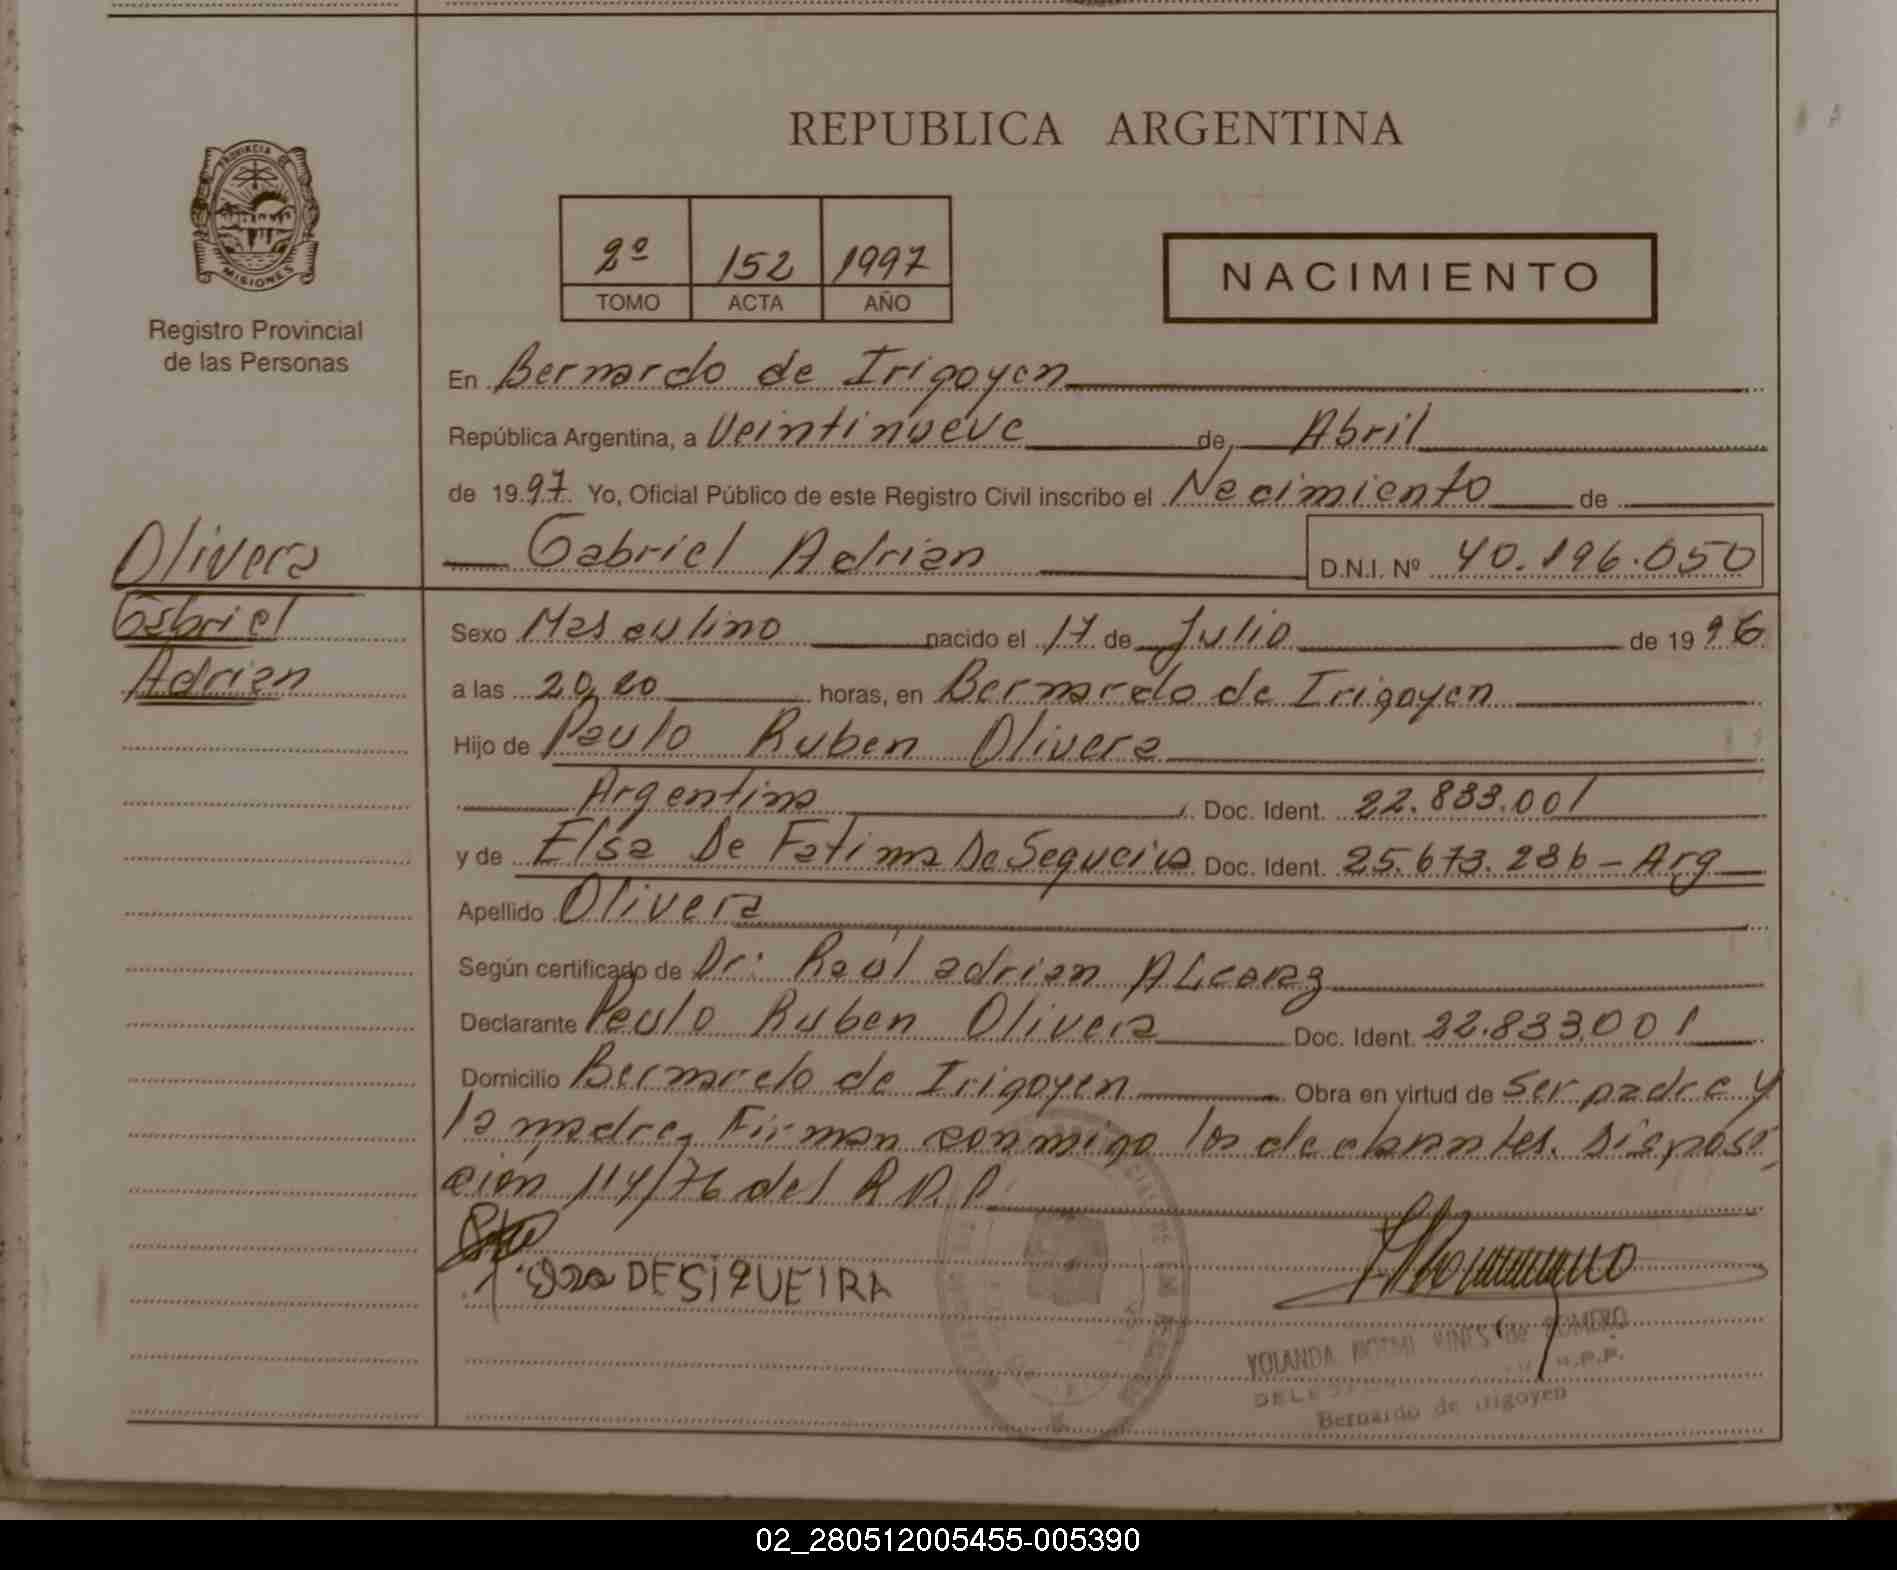 REPUBLICA ARGENTINA
PROVINCIA DE
MISIONES
Registro Provincial
de las Personas
2º 152 1997
TOMO ACTA AÑO
NACIMIENTO
En Bernardo de Irigoyen
República Argentina, a Veintinueve de Abril
de 1997 Yo, Oficial Público de este Registro Civil inscribo el Nacimiento de
Olivera
Gabriel Adrian D.N.I. Nº 40.196.050
Gabriel
Adrian
Sexo Masculino nacido el 17 de Julio de 1996
a las 20,20 horas, en Bernardo de Irigoyen
Hijo de Paulo Ruben Olivera
Argentina Doc. Ident. 22.833.001
y de Elsa De Fatima De Sequeira Doc. Ident. 25.673.286 - Arg
Apellido Olivera
Según certificado de Dr: Raúl adrian
Declarante Paulo Ruben Olivera Doc. Ident. 22.833.001
Domicilio Bernardo de Irigoyen Obra en virtud de ser padre y
la madre, Firman conmigo los declarantes. Disposi
ción 114/76 del R.P.P.
DESIQUEIRA
YOLANDA NOEMI de ROMERO
R.P.P.
Bernardo de Irigoyen
02_280512005455-005390